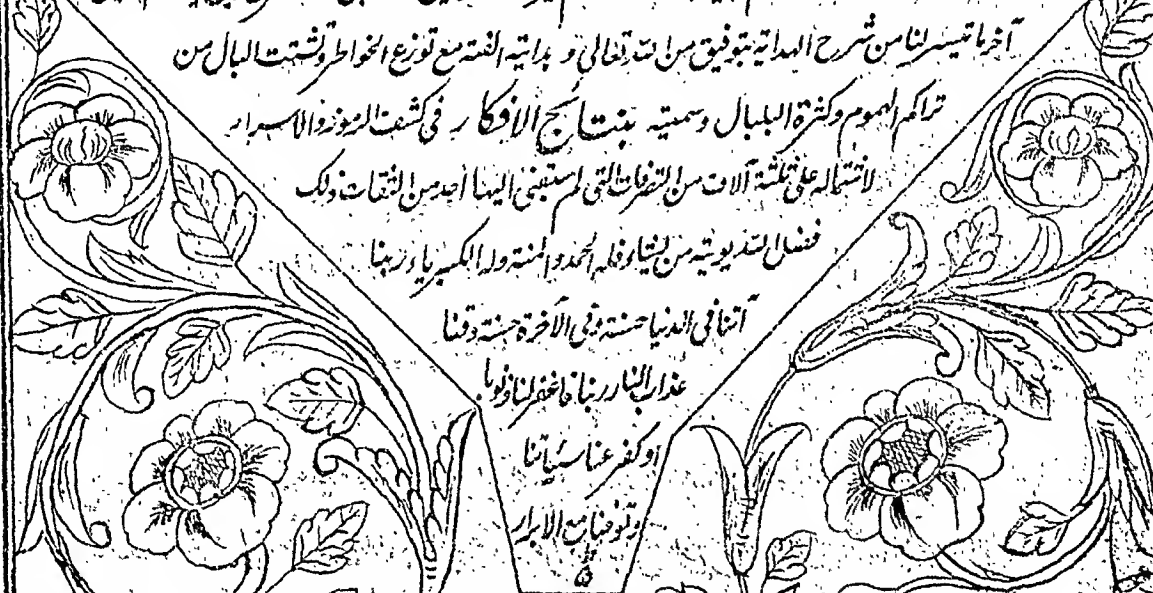 آخر ما تيسر لنا من شرح الهداية بتوفيق من الله تعالى و بدايته الفته مع توزع الخواطر وتشتت البال من
تراكم الهموم وكثرة البلبال وسميته بنتايج الافكار فى كشف الرموز والاسرار
لاشتماله على ثلثة آلاف من التصرفات التى لم تسبقنى اليها احد من الثقات ذلك
فضل الله يوتيه من يشاء فله الحمد والمنة وله الكبرياء ربنا
آتنا فى الدنيا حسنة وفى الآخرة حسنة وقنا
عذاب النار ربنا فاغفر لنا ذنوبنا
وكفر عنا سيئاتنا
وتوفنا مع الابرار